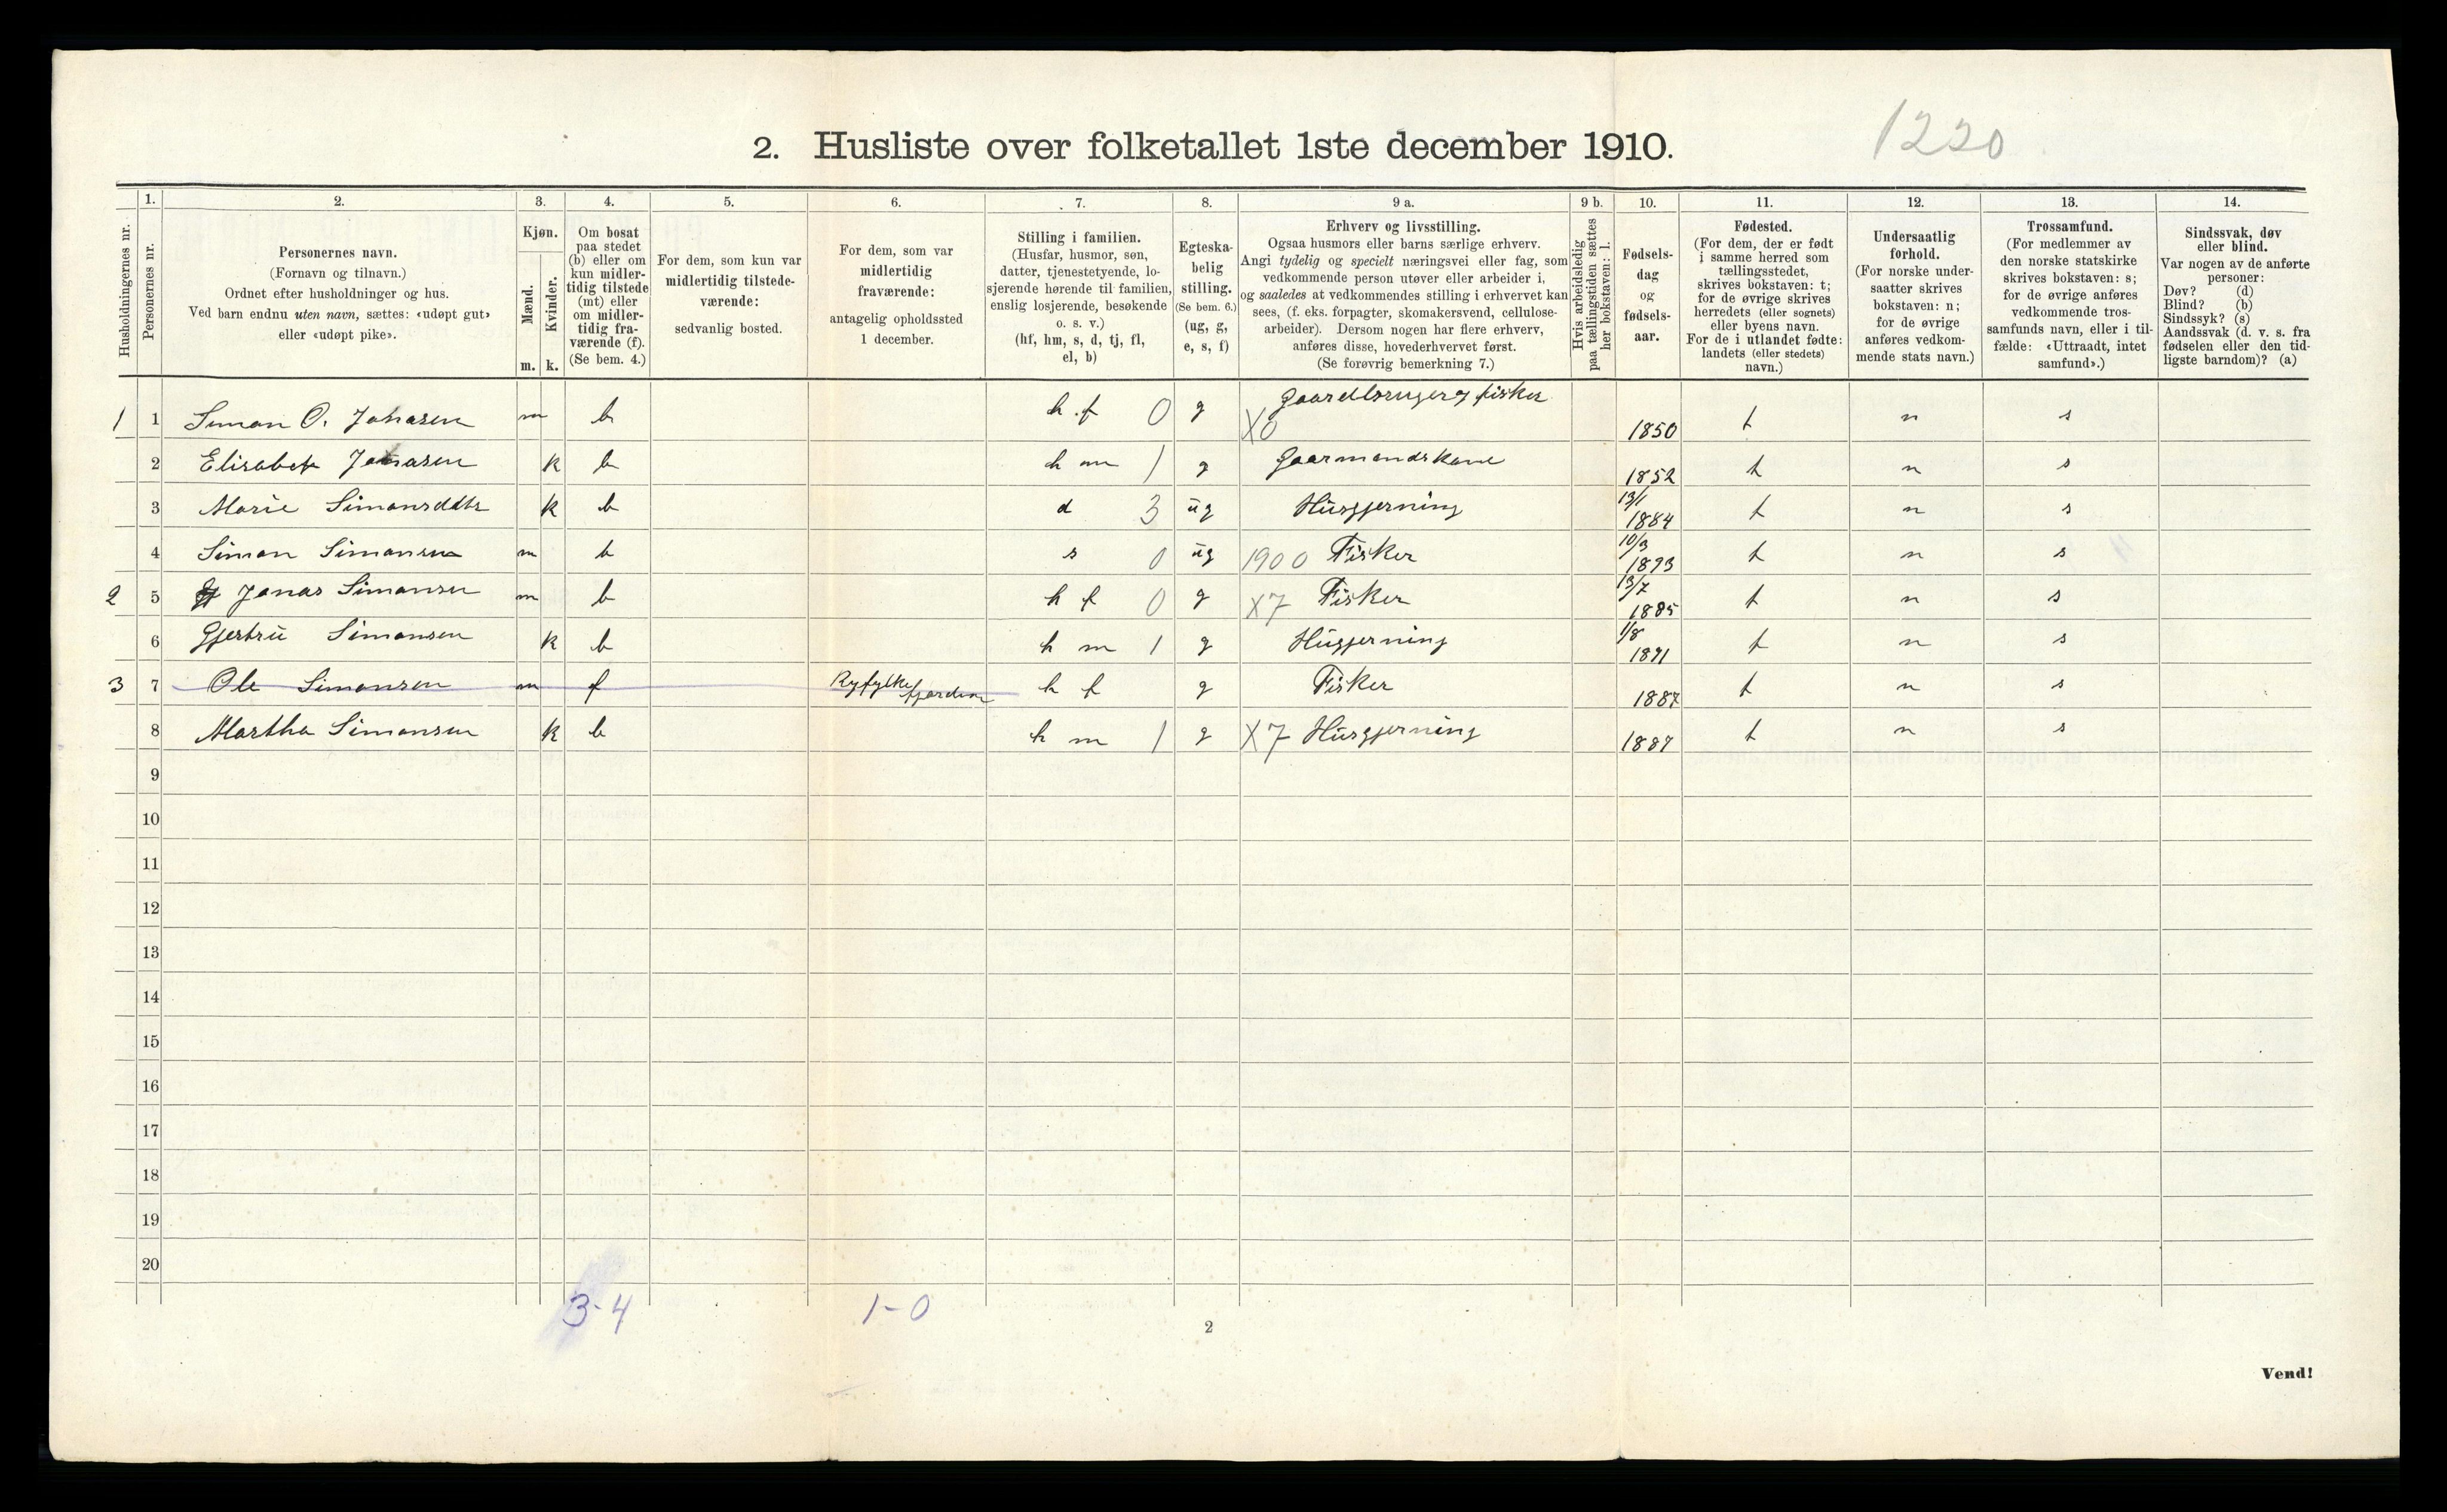 1220
2. Husliste over folketallet 1ste december 1910.
1. 2. 3. 4. 5. 6. 7. 8. 9 a. 9 b. 10. 11. 12. 13. 14.
Husholdningernes nr.
Personernes nr.
Personernes navn.
(Fornavn og tilnavn.)
Ordnet efter husholdninger og hus.
Ved barn endnu uten navn, sættes: «udøpt gut»
eller «udøpt pike».
Kjøn.
Mænd.
Kvinder.
m. k.
Om bosat
paa stedet
(b) eller om
kun midler-
tidig tilstede
(mt) eller
om midler-
tidig fra-
værende (f).
(Se bem. 4.)
For dem, som kun var
midlertidig tilstede-
værende:
sedvanlig bosted.
For dem, som var
midlertidig
fraværende:
antagelig opholdssted
1 december.
Stilling i familien.
(Husfar, husmor, søn,
datter, tjenestetyende, lo-
sjerende hørende til familien,
enslig losjerende, besøkende
o. s. v.)
(hf, hm, s, d, tj, fl,
el, b)
Egteska-
belig
stilling.
(Se bem. 6.)
(ug, g,
e, s, f)
Erhverv og livsstilling.
Ogsaa husmors eller barns særlige erhverv.
Angi tydelig og specielt næringsvei eller fag, som
vedkommende person utøver eller arbeider i,
og saaledes at vedkommendes stilling i erhvervet kan
sees, (f. eks. forpagter, skomakersvend, cellulose-
arbeider). Dersom nogen har flere erhverv,
anføres disse, hovederhvervet først.
(Se forøvrig bemerkning 7.)
Hvis arbeidsledig
paa tællingstiden sættes
her bokstaven: l.
Fødsels-
dag
og
fødsels-
aar.
Fødested.
(For dem, der er født
i samme herred som
tællingsstedet,
skrives bokstaven: t;
for de øvrige skrives
herredets (eller sognets)
eller byens navn.
For de i utlandet fødte:
landets (eller stedets)
navn.)
Undersaatlig
forhold.
(For norske under-
saatter skrives
bokstaven: n;
for de øvrige
anføres vedkom-
mende stats navn.)
Trossamfund.
(For medlemmer av
den norske statskirke
skrives bokstaven: s;
for de øvrige anføres
vedkommende tros-
samfunds navn, eller i til-
fælde: «Uttraadt, intet
samfund».)
Sindssvak, døv
eller blind.
Var nogen av de anførte
personer:
Døv? (d)
Blind? (b)
Sindssyk? (s)
Aandssvak (d. v. s. fra
fødselen eller den tid-
ligste barndom)? (a)
1 1 Simon O. Jonasen m b h.f 0 g X0 Gaardbruger og fisker 1850 t n s
2 Elisabet Jonasen k b h m 1 g Gaarmandskone 1852 t n s
3 Marie Simonsdatr k b d 3 ug Husgjerning 13/1 1884 t n s
4 Simon Simonsen m b s 0 ug 1900 Fisker 10/3 1893 t n s
2 5 Jonas Simonsen m b h f 0 g X7 Fisker 13/7 1885 t n s
6 Gjertru Simonsen k b h m 1 g Husgjerning 1/8 1891 t n s
3 7 Ole Simonsen m f Ryfylkefjorden h f g Fisker 1887 t n s
8 Martha Simonsen k b h m 1 g X7 Husgjerning 1887 t n s
9
10
11
12
13
14
15
16
17
18
19
20
3-4 1-0
2
Vend!